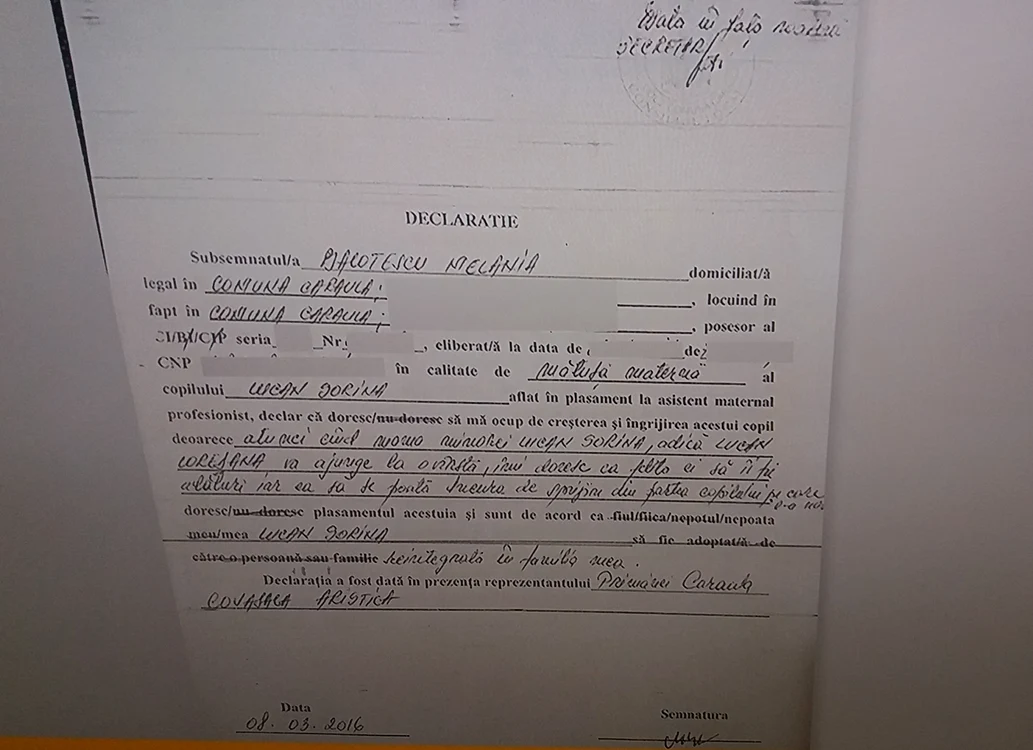 Data în fața noastră
SECRETAR
DECLARATIE
Subsemnatul/a PJACOTESCU MELANIA domiciliat/ă
legal în COMUNA CARAULA; , locuind în
fapt în COMUNA CARAULA; , posesor al
CI/BI/CIP seria Nr , eliberat/ă la data de de
- CNP în calitate de mătușă maternă al
copilului LUCAN SORINA aflat în plasament la asistent maternal
profesionist, declar că doresc/nu doresc să mă ocup de creșterea și îngrijirea acestui copil
deoarece atunci când mama minorei LUCAN SORINA, adică LUCAN
LOREDANA va ajunge la o vîrstă, îmi doresc ca fetița ei să îi fie
alături iar ea să se poată bucura de sprijin din partea copilului pe care
l-a născut
doresc/nu doresc plasamentul acestuia și sunt de acord ca fiul/fiica/nepotul/nepoata
meu/mea LUCAN SORINA să fie adoptat/ă de
către o persoană sau familie reintegrată în familia mea.
Declarația a fost dată în prezența reprezentantului Primăriei Caraula
COVASACA ARISTICA
Data Semnatura
08.03.2016